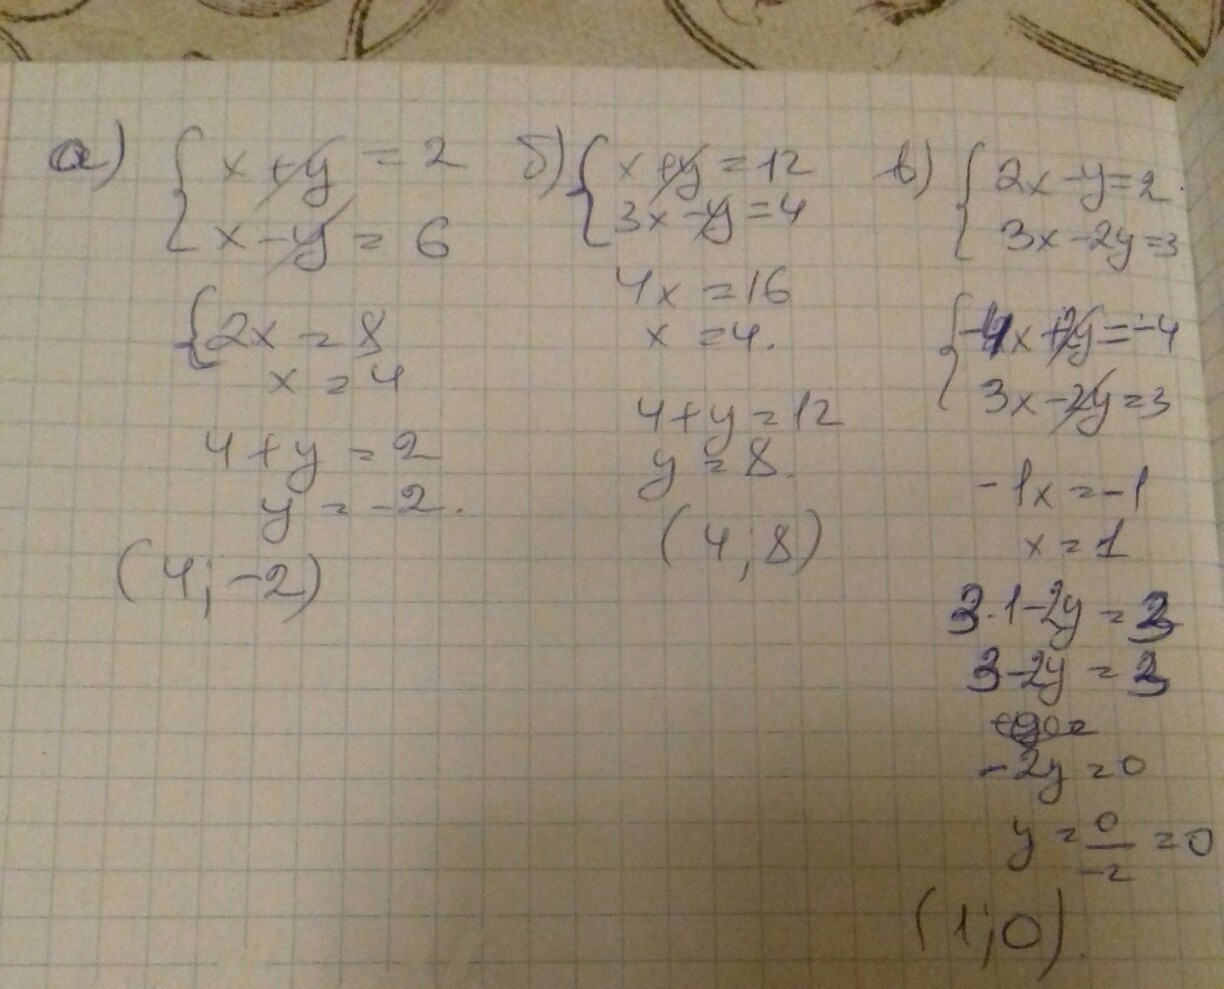 а)
x + y = 2
x - y = 6
2x = 8
x = 4
4 + y = 2
y = -2.
(4; -2)
б)
x + y = 12
3x - y = 4
4x = 16
x = 4.
4 + y = 12
y = 8.
(4; 8)
в)
2x - y = 2
3x - 2y = 3
-4x + 2y = -4
3x - 2y = 3
-1x = -1
x = 1
3·1 - 2y = 3
3 - 2y = 3
-2y = 0
y = 0/-2 = 0
(1; 0)